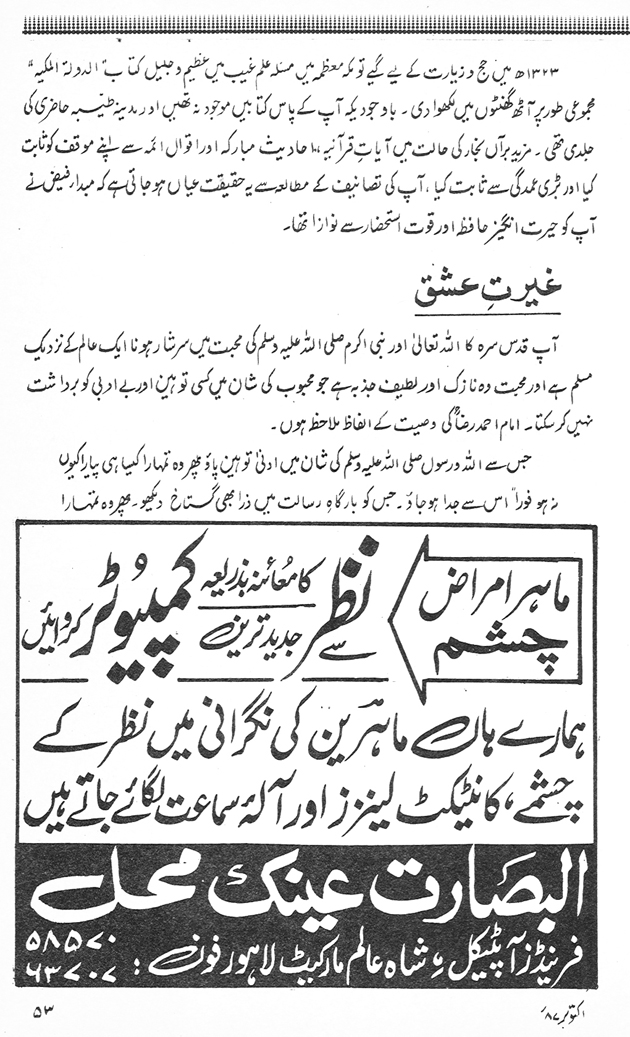 ۱۳۲۳ھ میں حج و زیارت کے لیے گیے تو مکہ معظمہ میں مسئلہ علم غیب میں عظیم و جلیل کتاب "الدولۃ المکیہ"
مجموعی طور پر آٹھ گھنٹوں میں لکھوا دی۔ باوجود یکہ آپ کے پاس کتابیں موجود نہ تھیں اور مدینہ طیبہ حاضری کی
جلدی تھی۔ مزید برآں بخار کی حالت میں آیاتِ قرآنیہ، احادیث مبارکہ اور اقوال ائمہ سے اپنے موقف کو ثابت
کیا اور بڑی عمدگی سے ثابت کیا، آپ کی تصانیف کے مطالعہ سے یہ حقیقت عیاں ہو جاتی ہے کہ مبدا فیض نے
آپ کو حیرت انگیز حافظہ اور قوت استحضار سے نوازا تھا۔
غیرتِ عشق
آپ قدس سرہ کا اللہ تعالیٰ اور نبی اکرم صلی اللہ علیہ وسلم کی محبت میں سرشار ہونا ایک عالم کے نزدیک
مسلم ہے اور محبت وہ نازک اور لطیف جذبہ ہے جو محبوب کی شان میں کسی توہین اور بے ادبی کو برداشت
نہیں کر سکتا۔ امام احمد رضاؒ کی وصیت کے الفاظ ملاحظہ ہوں۔
جس سے اللہ و رسول صلی اللہ علیہ وسلم کی شان میں ادنیٰ توہین پاؤ پھر وہ تمہارا کیسا ہی پیارا کیوں
نہ ہو فوراً اس سے جدا ہو جاؤ۔ جس کو بارگاہِ رسالت میں ذرا بھی گستاخ دیکھو۔ پھر وہ تمہارا
ماہر امراض
چشم
سے
نظر
کا معائنہ بذریعہ
جدید ترین
کمپیوٹر
کروائیں
ہمارے ہاں ماہرین کی نگرانی میں نظر کے
چشمے، کانٹیکٹ لینزز اور آلۂ سماعت لگائے جاتے ہیں
البصارت عینک محل
فرینڈز آپٹیکل، شاہ عالم مارکیٹ لاہور فون:
۵۸۵۷۰
۶۳۷۰۷
اکتوبر ۸۷ء
۵۳